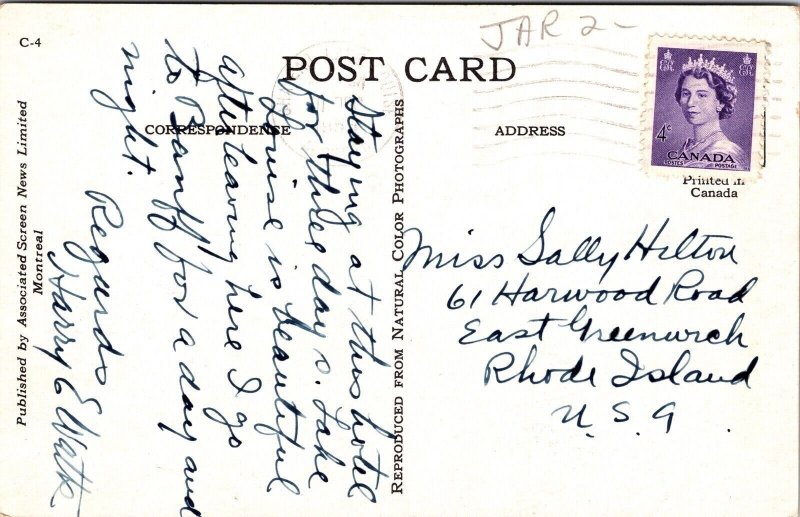 C-4
JAR 2-
POST CARD
CORRESPONDENCE
ADDRESS
4¢
CANADA
POSTES POSTAGE
Printed in
Canada
Staying at this hotel
for three days. Lake
Louise is beautiful
after leaving here I go
to Banff for a day and
night.
Regards
Harry E Watt
Miss Sally Hilton
61 Harwood Road
East Greenwich
Rhode Island
U.S.A
REPRODUCED FROM NATURAL COLOR PHOTOGRAPHS
Published by Associated Screen News Limited
Montreal